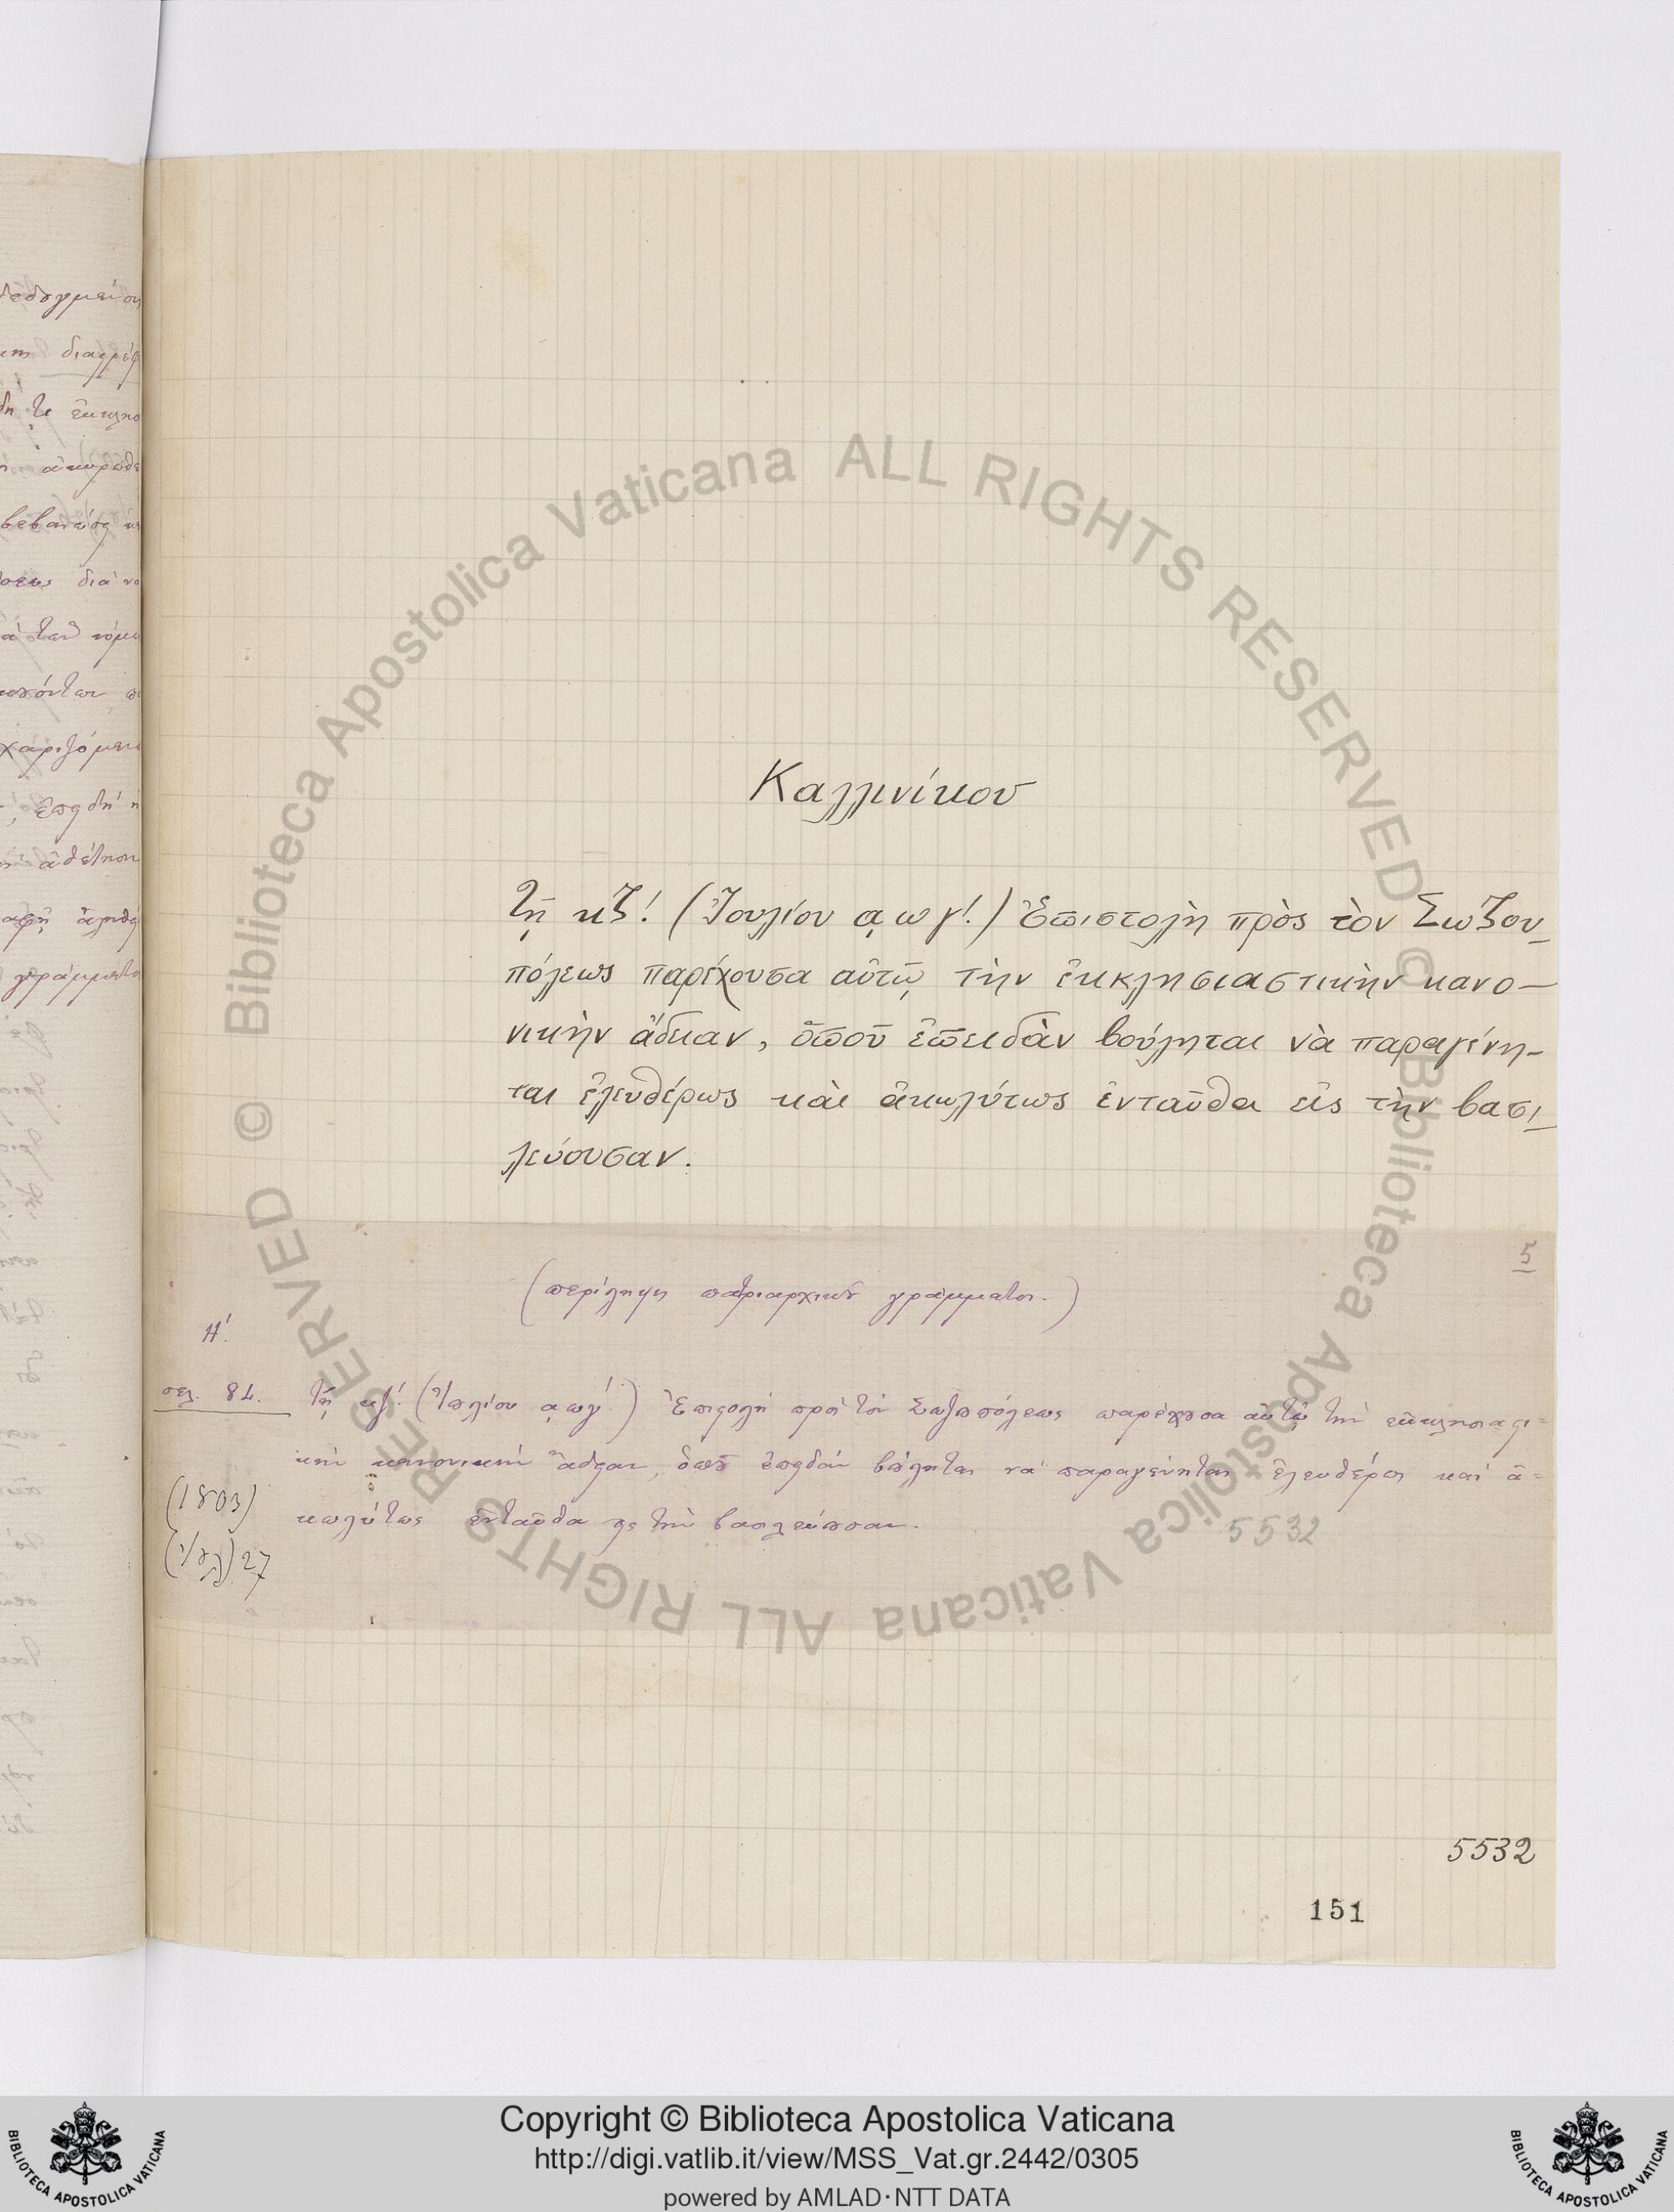 Καλλινίκου
Τῇ κζ! (Ἰουλίου ͵αωγ!.) Ἐπιστολὴ πρὸς τὸν Σωζου_
πόλεως παρέχουσα αὐτῷ τὴν ἐκκλησιαστικὴν κανο—
νικὴν ἄδειαν, ὅπου ἐπειδὰν βούληται νὰ παραγένη-
ται ἐλευθέρως καὶ ἀκωλύτως ἐνταῦθα εἰς τὴν βασι_
λεύουσαν.
5
(περίληψις πατριαρχικοῦ γράμματος.)
Η'.
σελ. 84. Τῇ κζ! (Ἰουλίου ͵αωγ'.) Ἐπιστολὴ πρὸς τὸν Σωζουπόλεως παρέχουσα αὐτῷ τὴν ἐκκλησιαστι=
κὴν κανονικὴν ἄδειαν, ὅπου ἐπειδὰν βούληται νὰ παραγένηται ἐλευθέρως καὶ ἀ=
(1803)
κωλύτως ἐνταῦθα εἰς τὴν βασιλεύουσαν.
5532
(Ἰουλ) 27
5532
151
© Biblioteca Apostolica Vaticana ALL RIGHTS RESERVED
© Biblioteca Apostolica Vaticana ALL RIGHTS RESERVED
Copyright © Biblioteca Apostolica Vaticana
http://digi.vatlib.it/view/MSS_Vat.gr.2442/0305
powered by AMLAD·NTT DATA
BIBLIOTECA APOSTOLICA VATICANA
BIBLIOTECA APOSTOLICA VATICANA